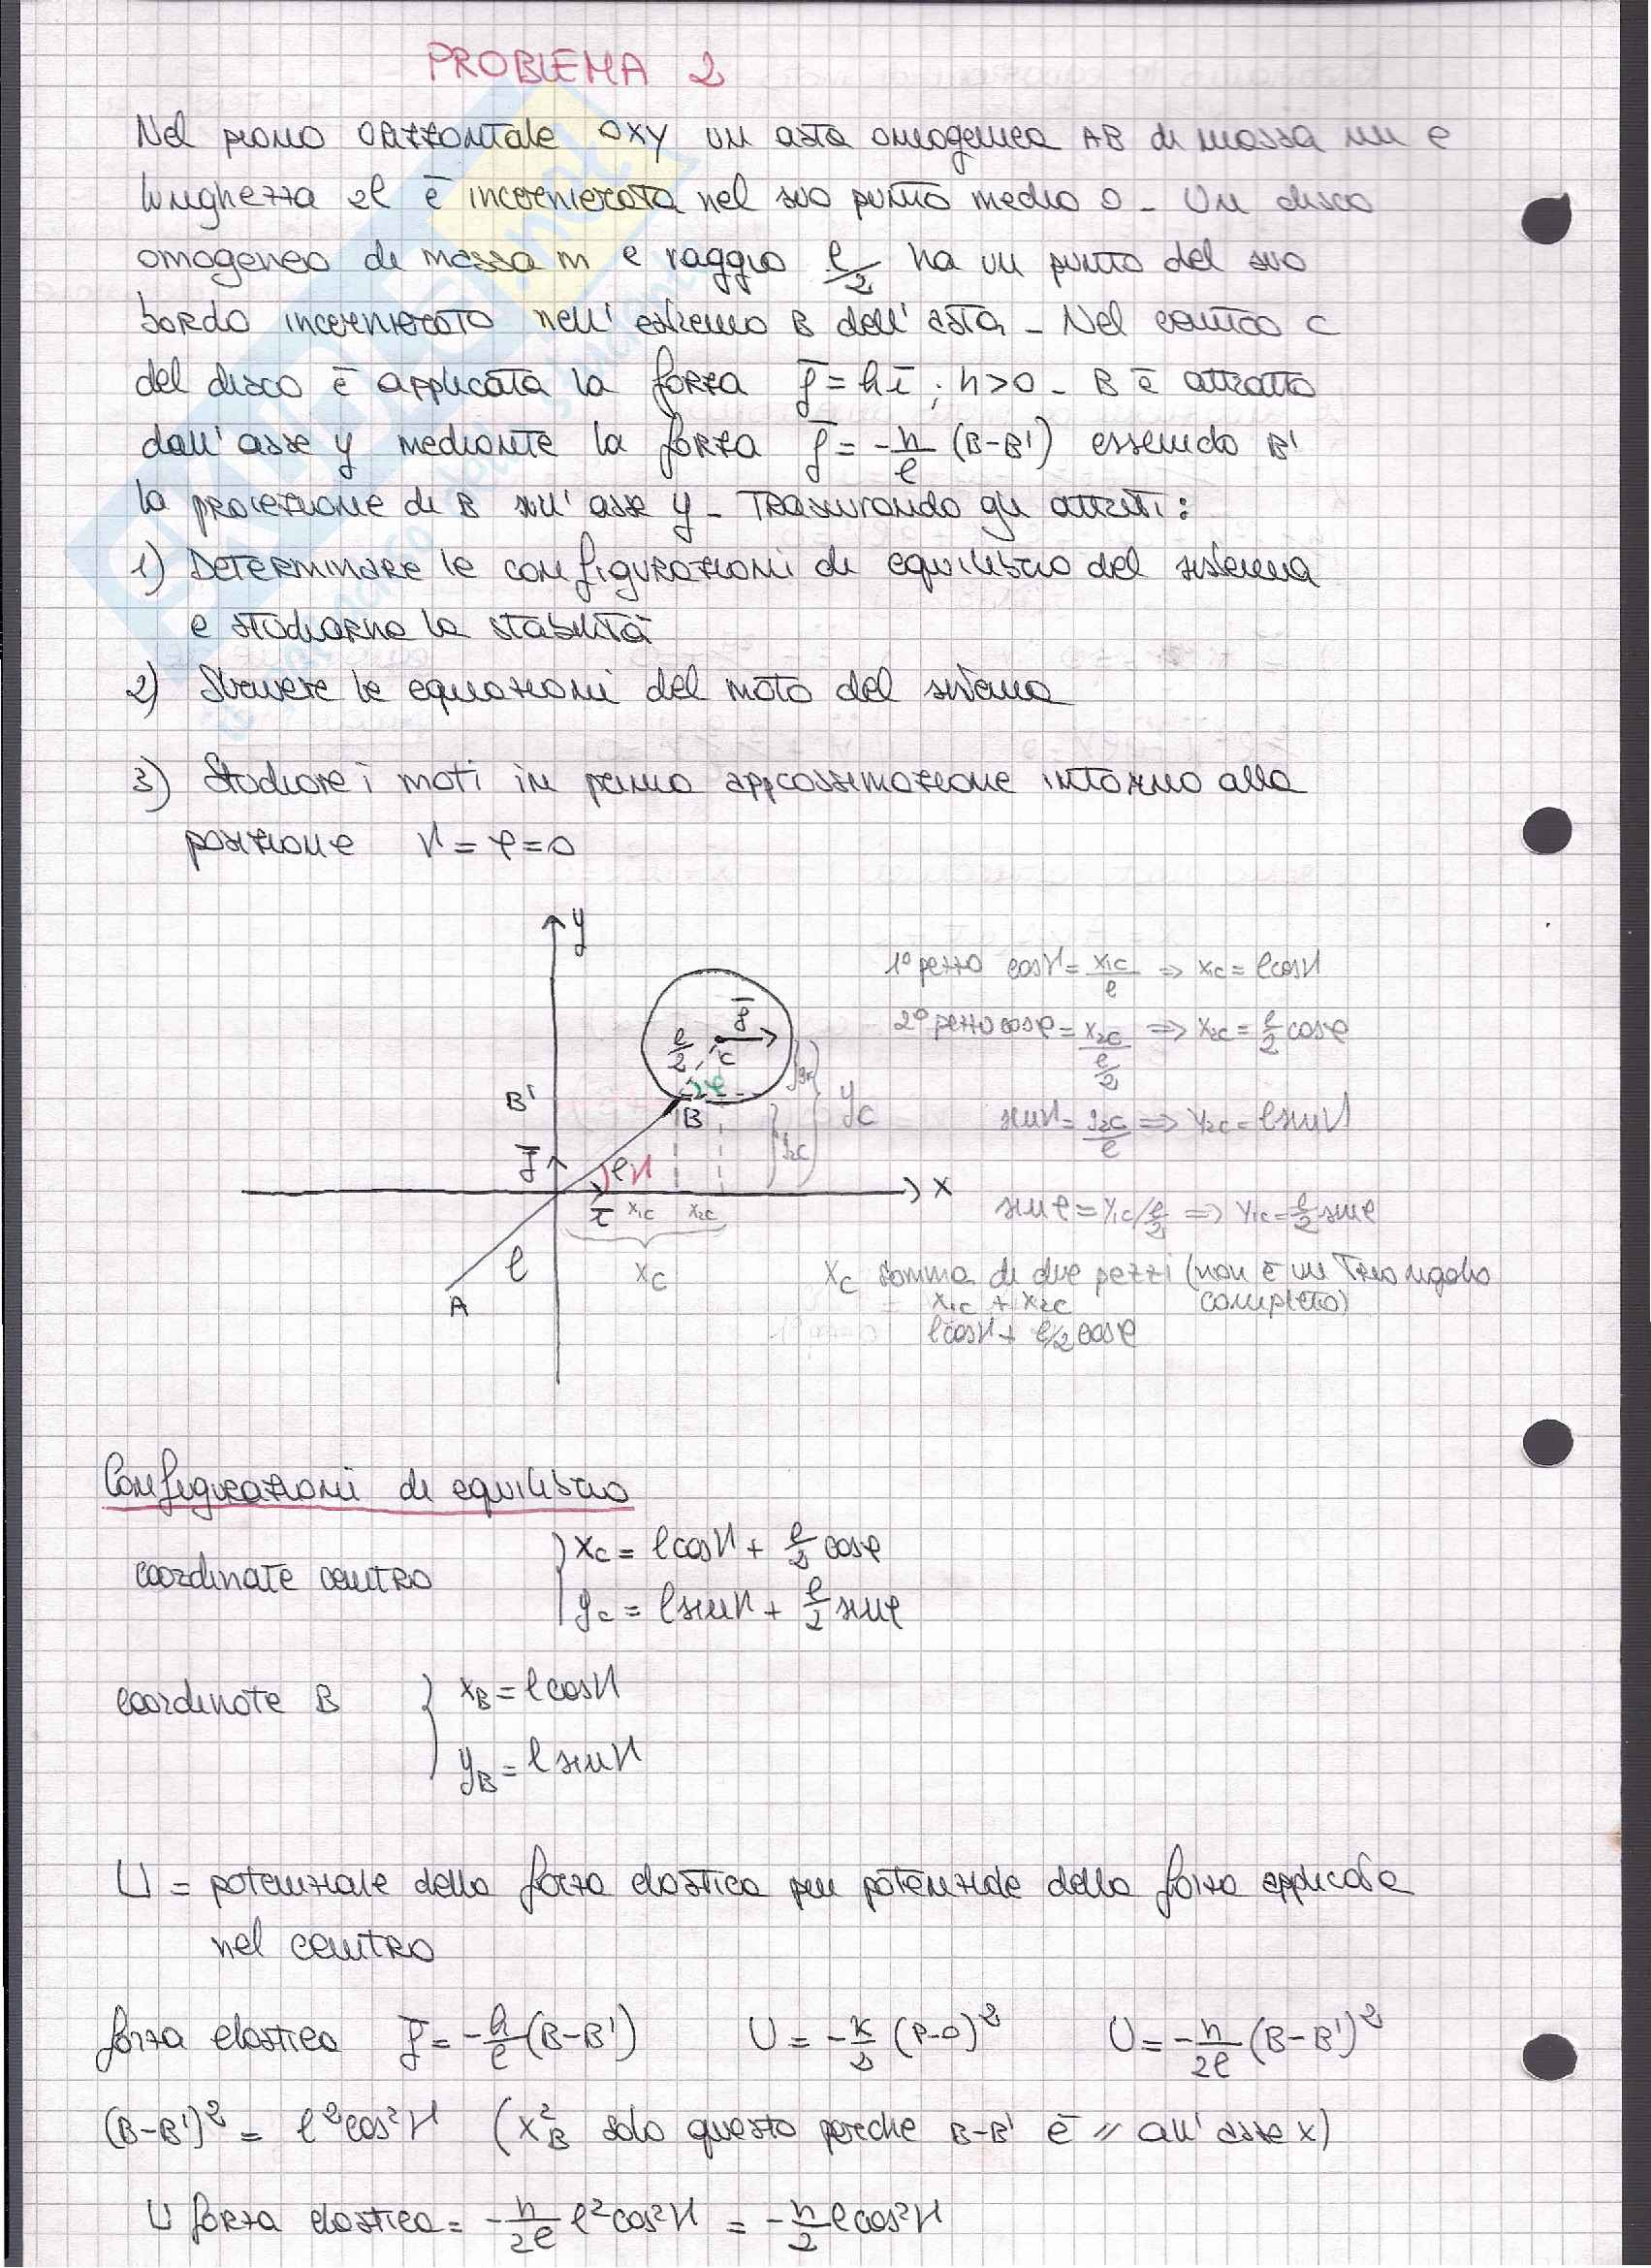 PROBLEMA 2
Nel piano orizzontale OXY un asta omogenea AB di massa m e
lunghezza 2l è incernierata nel suo punto medio O_ Un disco
omogeneo di massa m e raggio l/2 ha un punto del suo
bordo incernierato nell'estremo B dell'asta_ Nel centro C
del disco è applicata la forza f̄ = h ī ; h>0_ B è attratto
dall'asse y mediante la forza f̄ = -h/l (B-B') essendo B'
la proiezione di B sull'asse y_ Trascurando gli attriti:
1) Determinare le configurazioni di equilibrio del sistema
e studiarne la stabilità
2) Scrivere le equazioni del moto del sistema
3) Studiare i moti in prima approssimazione intorno alla
posizione ϑ = φ = 0
y
1° pezzo cosϑ = x1c/l => x1c = l cosϑ
2° pezzo cosφ = x2c/(l/2) => x2c = l/2 cosφ
f̄
l/2
C
φ
B'
B
yc
y2c
sinϑ = y2c/l => y2c = l sinϑ
j̄
l ϑ
x
ī
x1c x2c
sinφ = y1c/(l/2) => y1c = l/2 sinφ
l
A
xc
xc somma di due pezzi (non è un triangolo
completo)
x1c + x2c
l cosϑ + l/2 cosφ
Configurazioni di equilibrio
coordinate centro
xc = l cosϑ + l/2 cosφ
yc = l sinϑ + l/2 sinφ
coordinate B
xB = l cosϑ
yB = l sinϑ
U = potenziale della forza elastica più potenziale della forza applicata
nel centro
forza elastica f̄ = -h/l (B-B') U = -k/2 (P-O)² U = -h/2l (B-B')²
(B-B')² = l² cos²ϑ (x²B solo questo perche B-B' è // all'asse x)
U forza elastica = -h/2l l² cos²ϑ = -h/2 l cos²ϑ